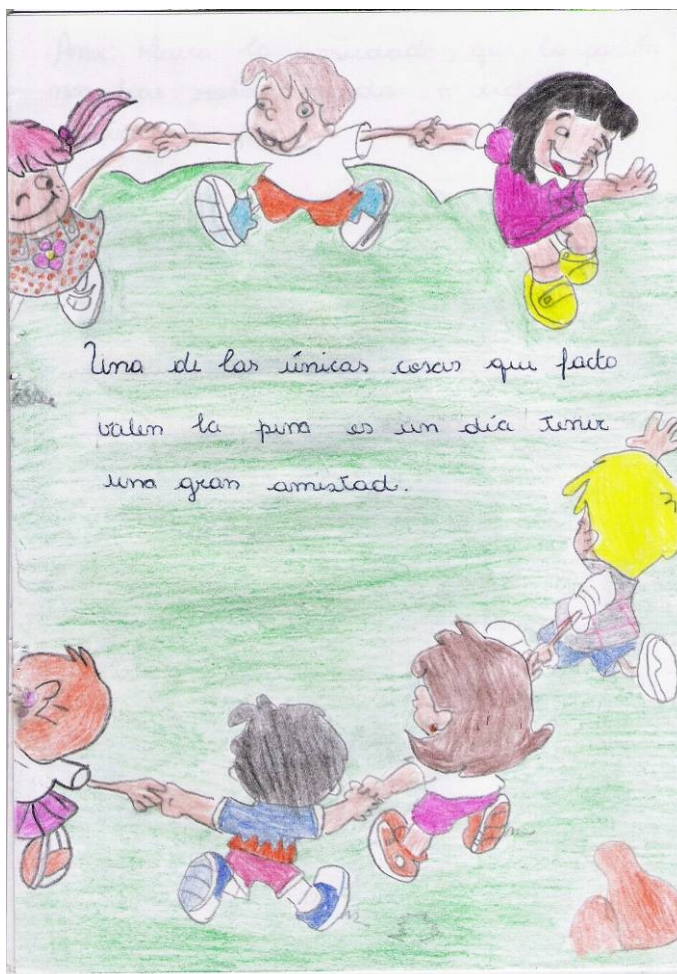 Una de las únicas cosas que facto
valen la pena es un día tener
una gran amistad.